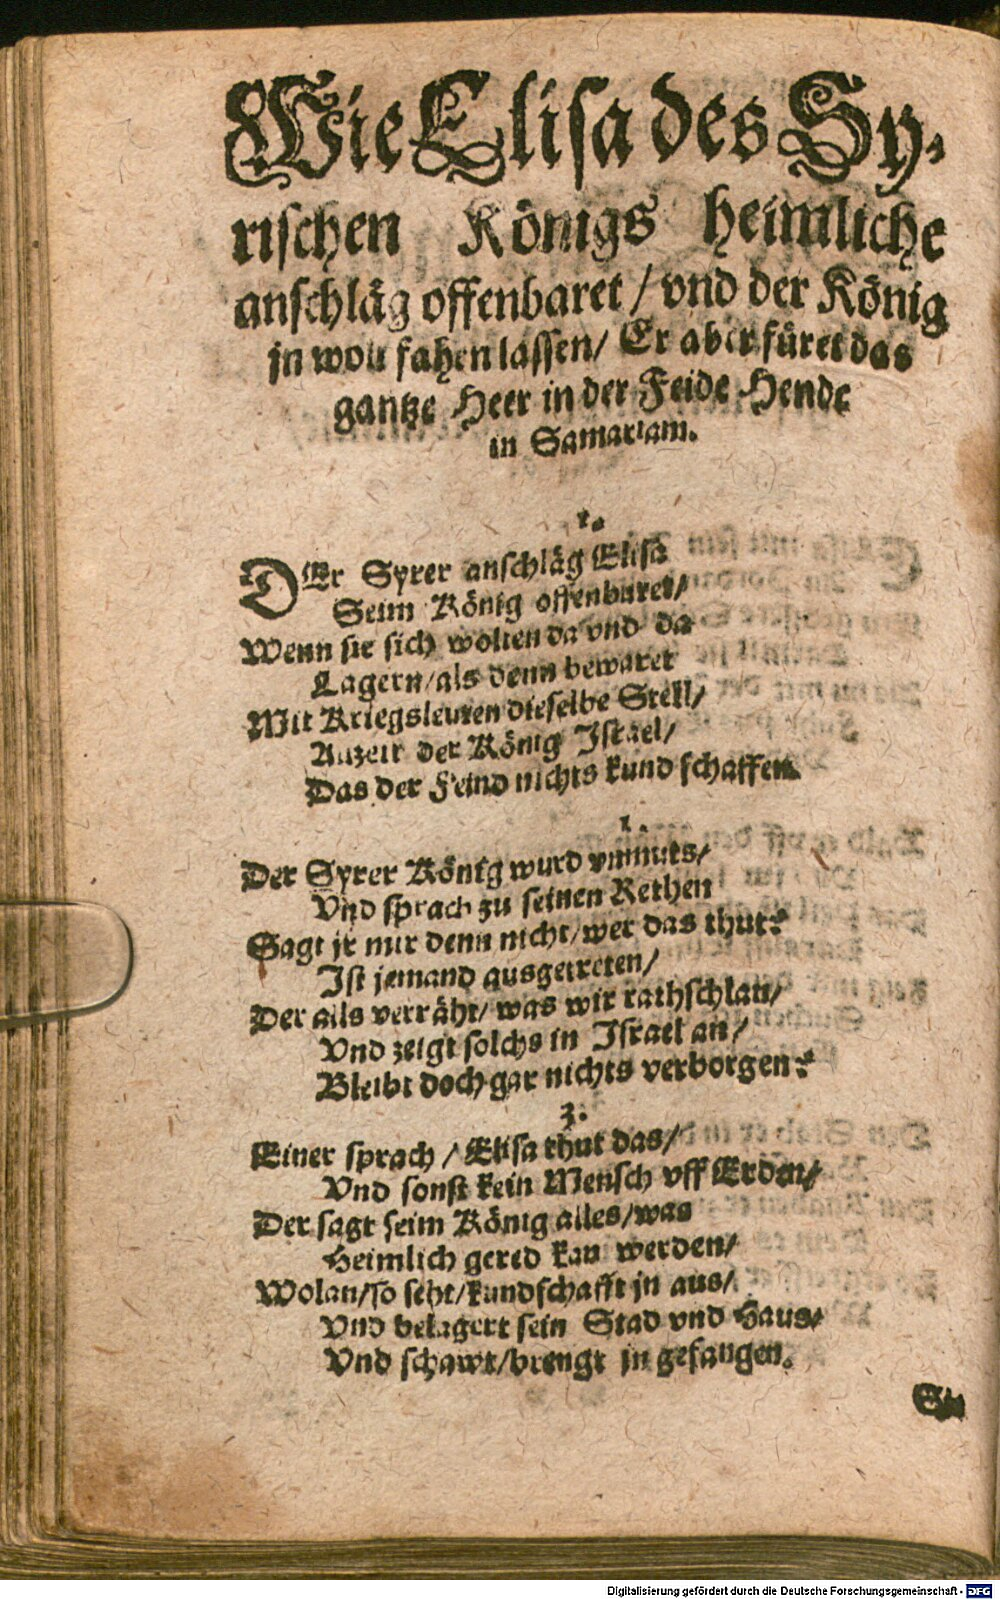 Wie Elisa des Sy-
rischen Königs heimliche
anschläg offenbaret / vnd der König
jn wolt fahen lassen / Er aber füret das
gantze Heer in der Feide Hende
in Samariam.
1.
DEr Syrer anschläg Elisa
Seim König offenbaret /
Wenn sie sich wolten da vnd da
Lagern / als denn bewaret
Mit Kriegsleuten dieselbe Stell /
Allzeit der König Israel /
Das der Feind nichts kund schaffen.
Der Syrer König wurd vnmuts /
Vnd sprach zu seinen Rethen
Sagt jr mir denn nicht / wer das thut?
Ist jemand ausgetreten /
Der alls verräht / was wir rathschlan /
Vnd zeigt solchs in Israel an /
Bleibt doch gar nichts verborgen?
3.
Einer sprach / Elisa thut das /
Vnd sonst kein Mensch vff Erden /
Der sagt seim König alles / was
Heimlich gered kan werden /
Wolan / so seht / kundschafft jn aus /
Vnd belagert sein Stad vnd Haus /
Vnd schawt / brengt jn gefangen.
Digitalisierung gefördert durch die Deutsche Forschungsgemeinschaft - DFG